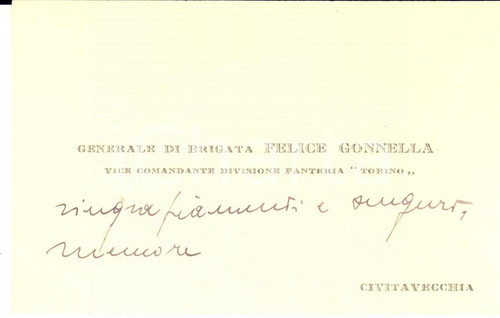 GENERALE DI BRIGATA FELICE GONNELLA
VICE COMANDANTE DIVISIONE FANTERIA "TORINO„
ringraziamenti e auguri,
memore
CIVITAVECCHIA